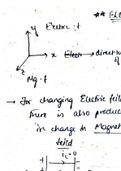 ** EL
y Electric f
x Electr → direct
z
Mg. f
→ For changing Electric fiel
there is also produc
in change to Magnet
field
ic=0
+ -